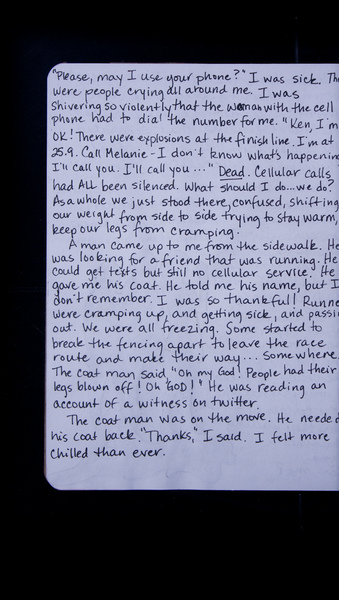 "Please, may I use your phone?" I was sick. The
were people crying all around me. I was
shivering so violently that the woman with the cell
phone had to dial the number for me. "Ken, I'm
OK! There were explosions at the finish line. I'm at
25.9. Call Melanie - I don't know what's happenin
I'll call you. I'll call you..." Dead. Cellular calls
had ALL been silenced. What should I do...we do?
As a whole we just stood there, confused, shifting
our weight from side to side trying to stay warm,
keep our legs from cramping.
A man came up to me from the sidewalk. He
was looking for a friend that was running. He
could get texts but still no cellular service. He
gave me his coat. He told me his name, but I
don't remember. I was so thankful! Runne
were cramping up, and getting sick, and passi
out. We were all freezing. Some started to
break the fencing apart to leave the race
route and make their way... Somewhere.
The coat man said, "Oh my God! People had their
legs blown off! Oh GOD!" He was reading an
account of a witness on twitter.
The coat man was on the move. He neede
his coat back. "Thanks," I said. I felt more
chilled than ever.